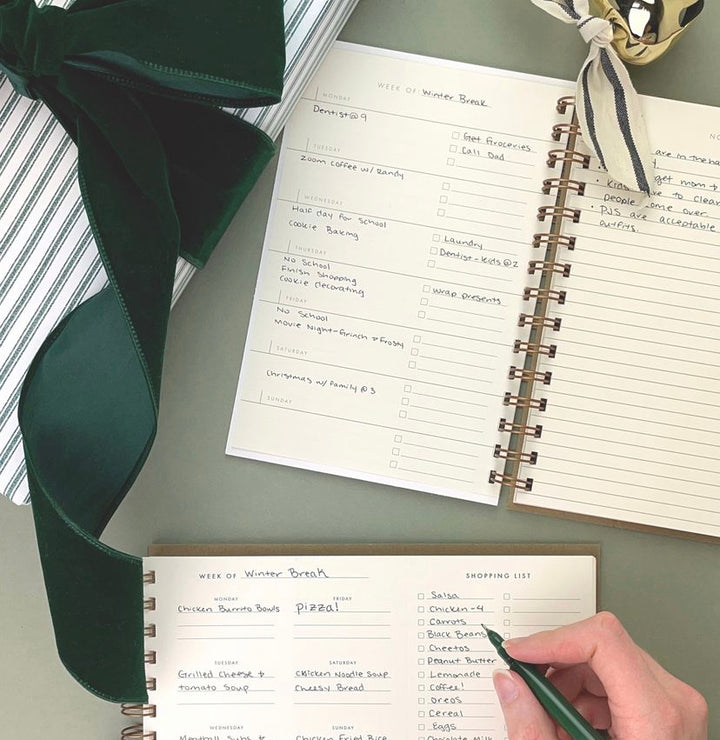 WEEK OF: Winter Break
MONDAY
Dentist @ 9
Get Groceries
Call Dad
TUESDAY
Zoom coffee w/ Randy
WEDNESDAY
Half day for School
Cookie Baking
Laundry
Dentist - Kids @ 2
THURSDAY
No School
Finish Shopping
Cookie decorating
Wrap presents
FRIDAY
No School
Movie Night - Grinch & Frosty
SATURDAY
Christmas w/ Family @ 3
SUNDAY
are in the
get mom
Kids to clean
people come over.
• PJS are acceptable
outfits.
WEEK OF Winter Break
MONDAY
Chicken Burrito Bowls
TUESDAY
Grilled Cheese &
tomato Soup
WEDNESDAY
Meatball Subs &
FRIDAY
Pizza!
SATURDAY
Chicken Noodle Soup
Cheesy Bread
SUNDAY
Chicken Fried Rice
SHOPPING LIST
Salsa
Chicken - 4
Carrots
Black Beans
Cheetos
Peanut Butter
Lemonade
Coffee!
Oreos
Cereal
Eggs
Chocolate Milk